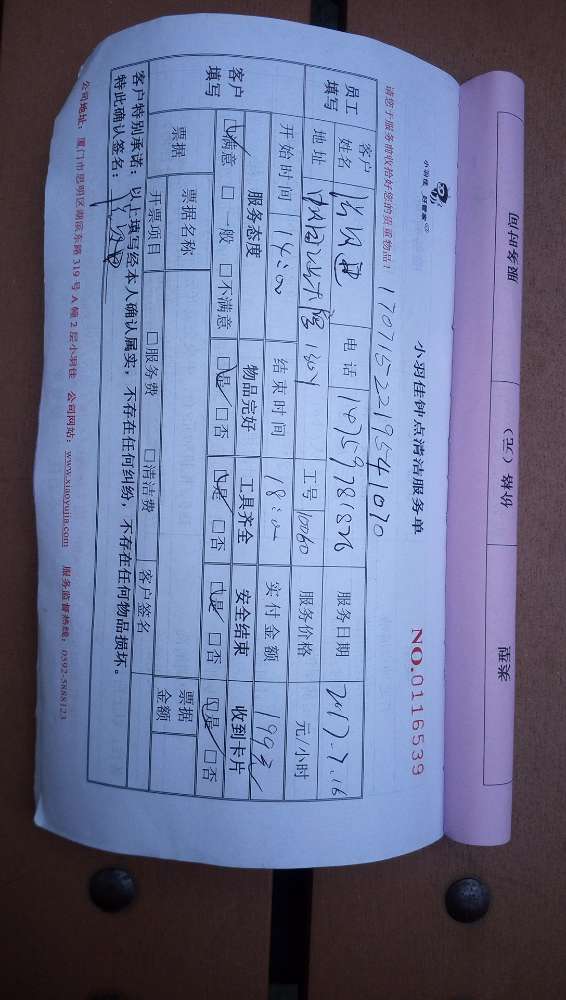 小羽佳 好管家
小羽佳钟点清洁服务单
NO.0116539
请您于服务前收拾好您的贵重物品！
17071522195541070
员工填写
客户姓名
电话
服务日期 2017.7.16
地址
工号 10060
服务价格 元/小时
开始时间 14:00
结束时间
实付金额
客户填写
服务态度 物品完好 工具齐全 安全结束 收到卡片
☑满意 □一般 □不满意 ☑是 □否 ☑是 □否 ☑是 □否 ☑是 □否
票据
票据名称
票据金额
开票项目 □服务费 □清洁费 客户签名
客户特别承诺：以上填写经本人确认属实；不存在任何纠纷，不存在任何物品损坏。
特此确认签名：
公司地址：厦门市思明区湖滨东路319号A幢2层小羽佳 公司网站：www.xiaoyujia.com 服务监督热线：0592-5888123